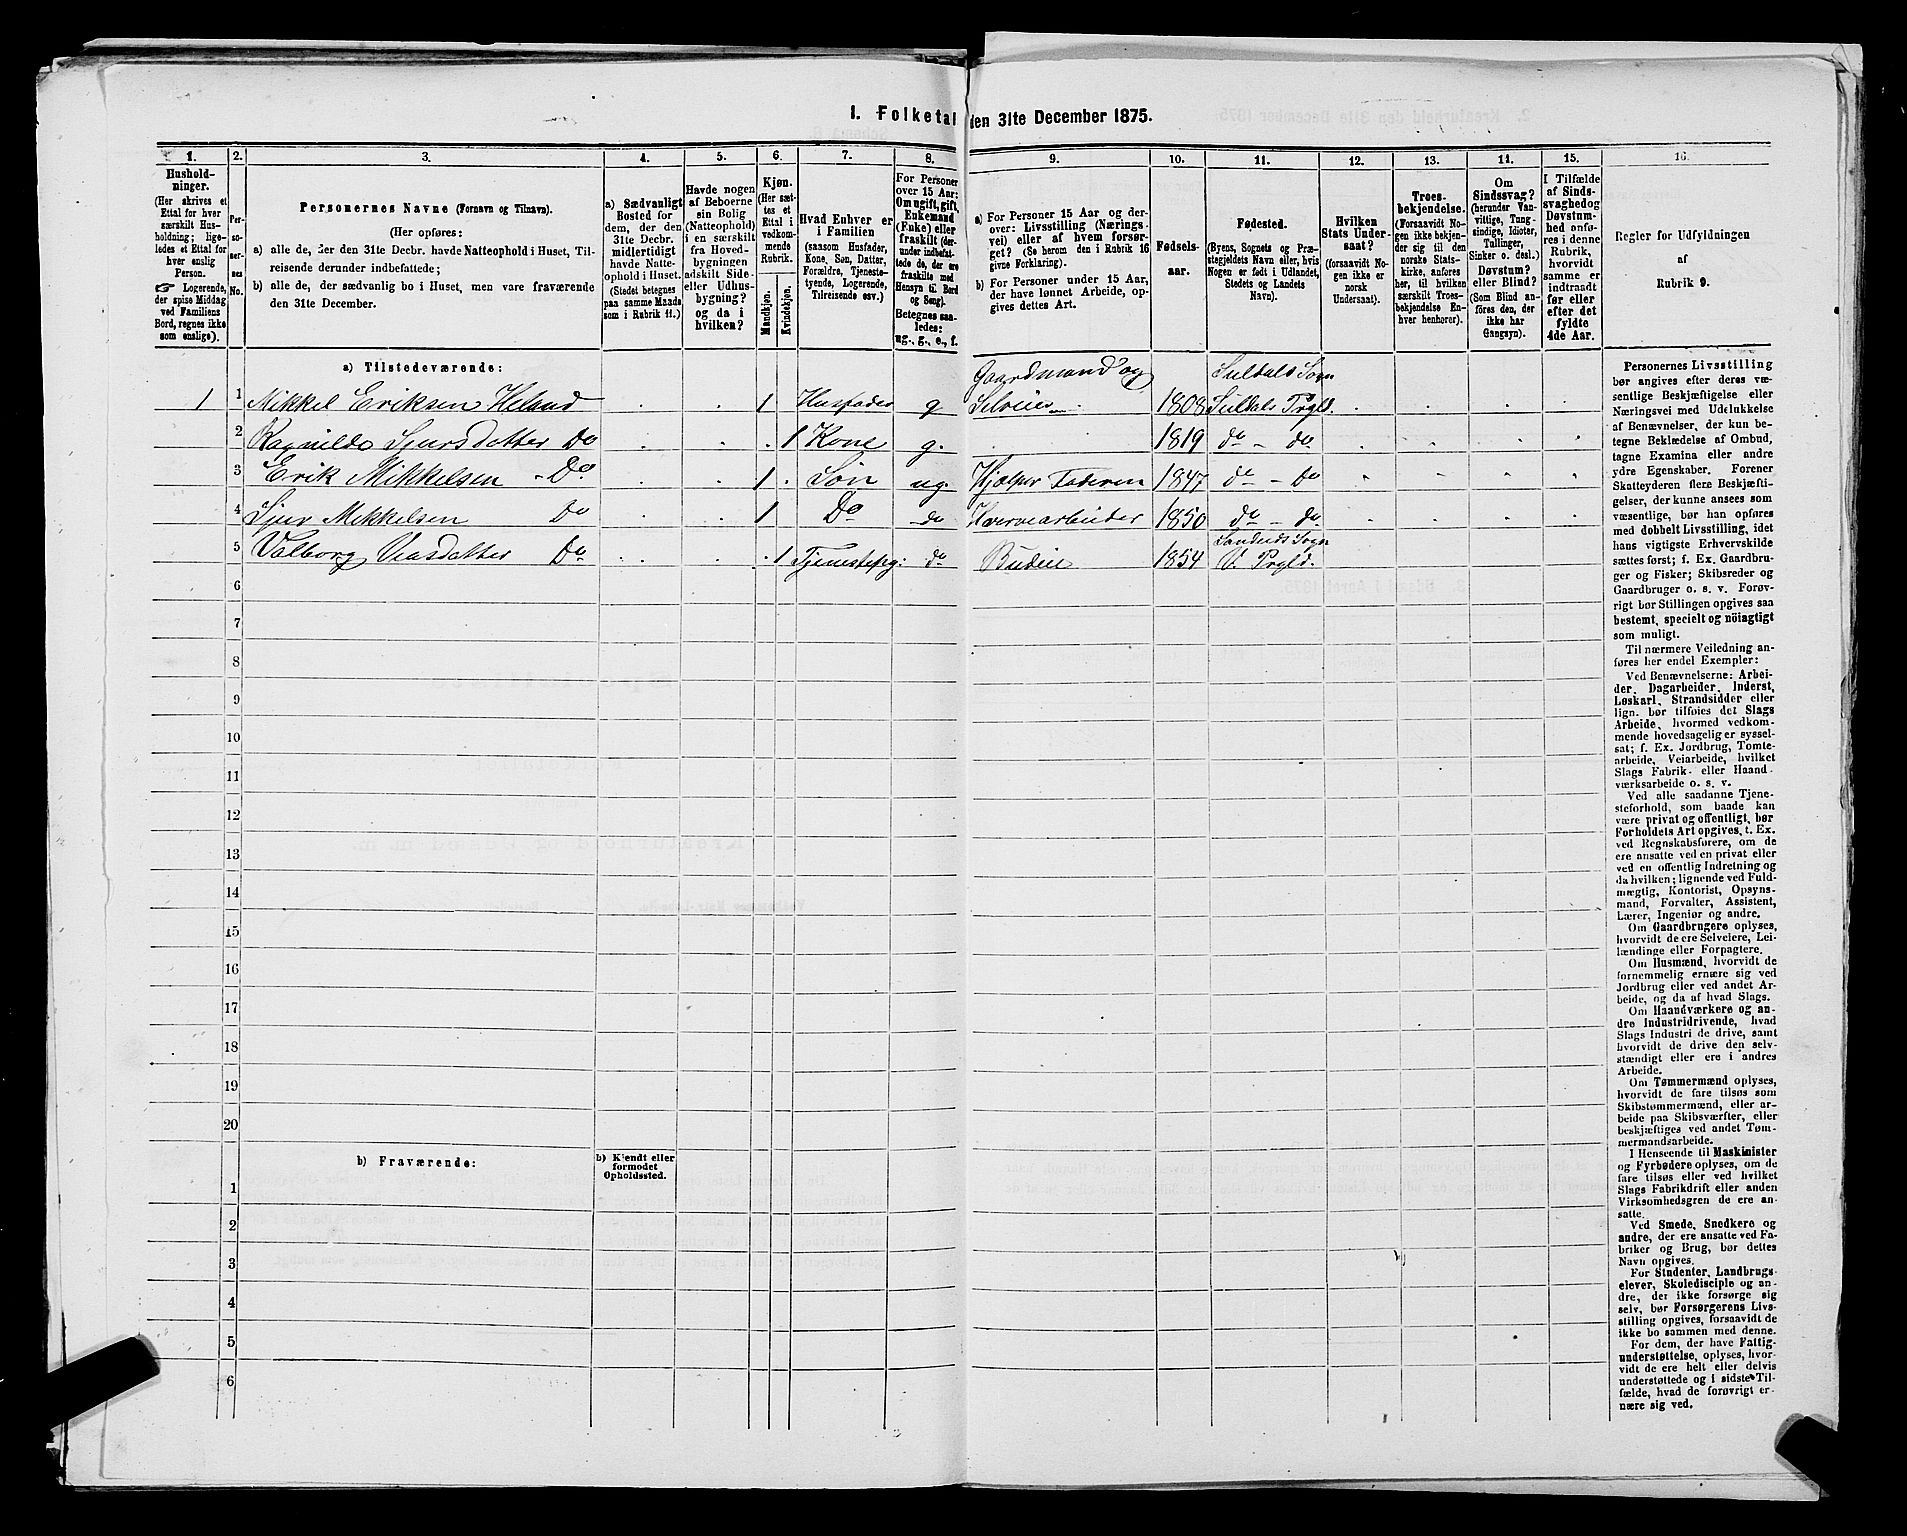 1. Folketal den 31te December 1875.
1.
2.
3.
4.
5.
6.
7.
8.
9.
10.
11.
12.
13.
14.
15.
16.
Hushold-
ninger.
(Her skrives et
Ettal for hver
særskilt Hus-
holdning; lige-
ledes et Ettal for
hver enslig
Person.
☞ Logerende,
der spise Middag
ved Familiens
Bord, regnes ikke
som enslige).
Per-
so-
ner-
nes
No.
Personernes Navne (Fornavn og Tilnavn).
(Her opføres:
a) alle de, der den 31te Decbr. havde Natteophold i Huset, Til-
reisende derunder indbefattede;
b) alle de, der sædvanlig bo i Huset, men vare fraværende
den 31te December.
a) Sædvanligt
Bosted for
dem, der den
31te Decbr.
midlertidigt
havde Natte-
ophold i Huset.
(Stedet betegnes
paa samme Maade
som i Rubrik 11.)
Havde nogen
af Beboerne
sin Bolig
(Natteophold)
i en særskilt
fra Hoved-
bygningen
adskilt Side-
eller Udhus-
bygning?
og da i
hvilken?
Kjøn.
(Her sæt-
tes et
Ettal i
vedkom-
mende
Rubrik.
Mandkjøn.
Kvindekjøn.
Hvad Enhver er
i Familien
(saasom Husfader,
Kone, Søn, Datter,
Forældre, Tjeneste-
tyende, Logerende,
Tilreisende osv.)
For Personer
over 15 Aar:
Om ugift, gift,
Enkemand
(Enke) eller
fraskilt (der-
under indbefat-
tede de, der ere
fraskilte med
Hensyn til Bord
og Seng).
Betegnes saa-
ledes:
ug., g., e., f.
a) For Personer 15 Aar og der-
over: Livsstilling (Nærings-
vei) eller af hvem forsør-
get? (Se herom den i Rubrik 16
givne Forklaring).
b) For Personer under 15 Aar,
der have lønnet Arbeide, op-
gives dettes Art.
Fødsels-
aar.
Fødested.
(Byens, Sognets og Præ-
stegjeldets Navn eller, hvis
Nogen er født i Udlandet,
Stedets og Landets
Navn).
Hvilken
Stats Under-
saat?
(forsaavidt No-
gen ikke er
norsk
Undersaat).
Troes-
bekjendelse.
(Forsaavidt No-
gen ikke bekjen-
der sig til den
norske Stats-
kirke, anføres
her, til hvilken
særskilt Troes-
bekjendelse En-
hver henhører).
Om
Sindssvag?
(herunder Van-
vittige, Tung-
sindige, Idioter,
Tullinger,
Sinker o. desl.)
Døvstum?
eller Blind?
(Som Blind an-
føres den, der
ikke har
Gangsyn).
I Tilfælde
af Sinds-
svaghed og
Døvstum-
hed anfø-
res i denne
Rubrik,
hvorvidt
samme er
indtraadt
før eller
efter det
fyldte
4de Aar.
Regler for Udfyldningen
af
Rubrik 9.
a) Tilstedeværende:
Gaardmand og Suldals Sogn
1 1 Mikkel Eriksen Heland 1 Husfader g Selveier 1808 Suldals Prgld.
2 Ragnilde Sjursdatter Do 1 Kone g. 1819 do - do
3 Erik Mikkelsen - Do 1 Søn ug. Hjælper Faderen 1847 do - do
4 Sjur Mikkelsen Do 1 Do do 1850 do - do
Sogn
5 Valborg Do 1 do Budeie 1854 Prgld.
6
7
8
9
10
11
12
13
14
15
16
17
18
19
20
b) Fraværende:
b) Kjendt eller
formodet
Opholdssted.
1
2
3
4
5
6
Personernes Livsstilling
bør angives efter deres væ-
sentlige Beskjæftigelse eller
Næringsvei med Udelukkelse
af Benævnelser, der kun be-
tegne Beklædelse af Ombud,
tagne Examina eller andre
ydre Egenskaber. Forener
Skatteyderen flere Beskjæfti-
gelser, der kunne ansees som
væsentlige, bør han opføres
med dobbelt Livsstilling, idet
hans vigtigste Erhvervskilde
sættes først; f. Ex. Gaardbru-
ger og Fisker; Skibsreder og
Gaardbruger o. s. v. Forøv-
rigt bør Stillingen opgives saa
bestemt, specielt og nöiagtigt
som muligt.
Til nærmere Veiledning an-
føres her endel Exempler:
Ved Benævnelserne: Arbei-
der, Dagarbeider, Inderst,
Løskarl, Strandsidder eller
lign. bør tilføies det Slags
Arbeide, hvormed vedkom-
mende hovedsagelig er syssel-
sat; f. Ex. Jordbrug, Tomte-
arbeide, Veiarbeide, hvilket
Slags Fabrik- eller Haand-
værksarbeide o. s. v.
Ved alle saadanne Tjene-
steforhold, som baade kan
være privat og offentligt, bør
Forholdets Art opgives, t. Ex.
ved Regnskabsførere, om de
ere ansatte ved en privat eller
ved en offentlig Indretning og
da hvilken; lignende ved Fuld-
mægtig, Kontorist, Opsyns-
mand, Forvalter, Assistent,
Lærer, Ingeniør og andre.
Om Gaardbrugere oplyses,
hvorvidt de ere Selveiere, Lei-
lændinge eller Forpagtere.
Om Husmænd, hvorvidt de
fornemmelig ernære sig ved
Jordbrug eller ved andet Ar-
beide, og da af hvad Slags.
Om Haandværkere og an-
dre Industridrivende, hvad
Slags Industri de drive, samt
hvorvidt de drive den selv-
stændigt eller ere i andres
Arbeide.
Om Tømmermænd oplyses,
hvorvidt de fare tilsøs som
Skibstømmermænd, eller ar-
beide paa Skibsværfter, eller
beskjæftiges ved andet Tøm-
mermandsarbeide.
I Henseende til Maskinister
og Fyrbødere oplyses, om de
fare tilsøs eller ved hvilket
Slags Fabrikdrift eller anden
Virksomhedsgren de ere an-
satte.
Ved Smede, Snedkere og
andre, der ere ansatte ved Fa-
briker og Brug, bør dettes
Navn opgives.
For Studenter, Landbrugs-
elever, Skoledisciple og an-
dre, der ikke forsørge sig
selv, bør Forsørgerens Livs-
stilling opgives, forsaavidt de
ikke bo sammen med denne.
For dem, der have Fattig-
understøttelse, oplyses, hvor-
vidt de ere helt eller delvis
understøttede og i sidste Til-
fælde, hvad de forøvrigt er-
nære sig ved.